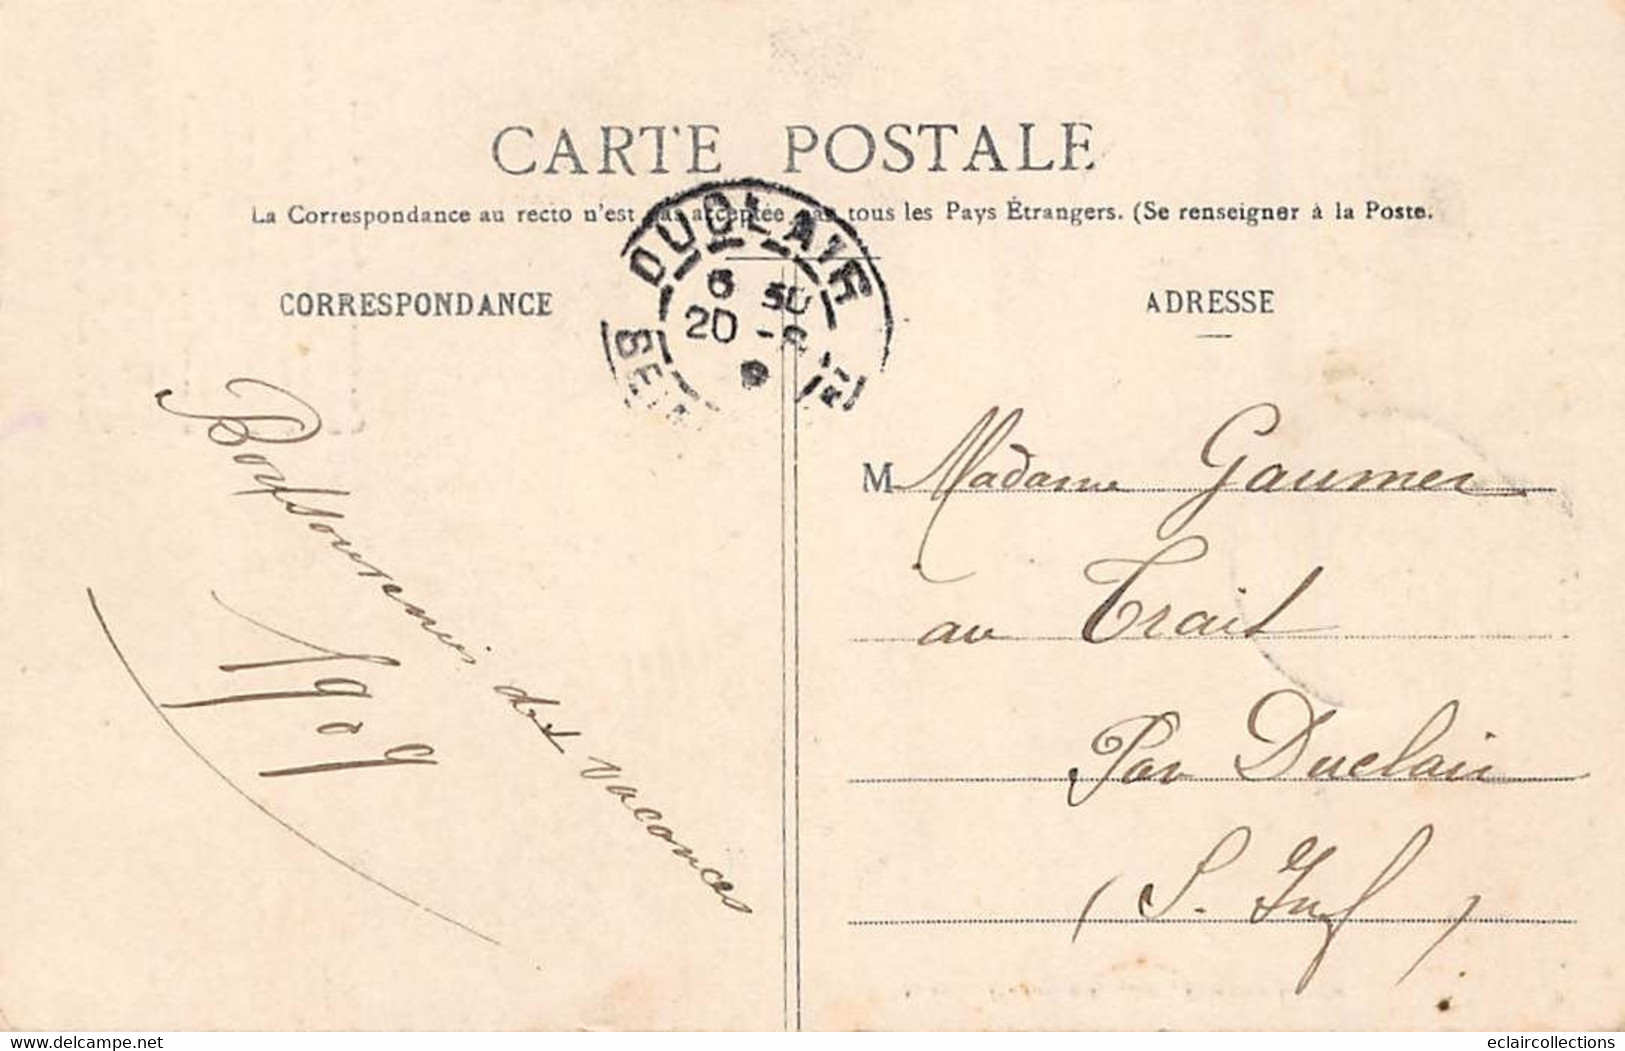 CARTE POSTALE
La Correspondance au recto n'est pas acceptée par tous les Pays Étrangers. (Se renseigner à la Poste.
CORRESPONDANCE
ADRESSE
DUCLAIR
6 50
20 -8
09
SEINE
Bon souvenir des vacances
1909
M Madame Gaumer
au Trait
Par Duclair
(S. Inf)
www.delcampe.net
eclaircollections